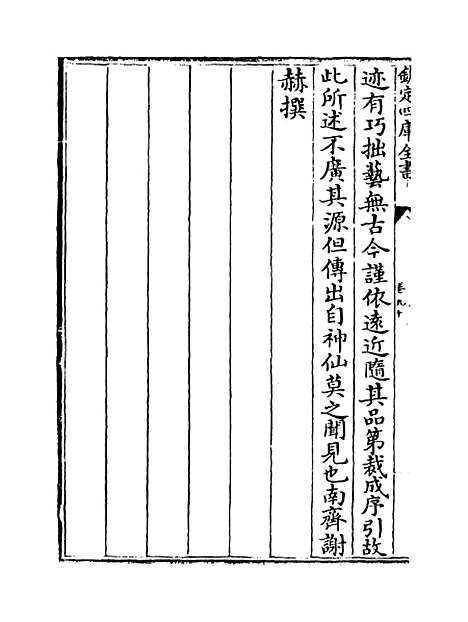 欽定四庫全書
卷九十
迹有巧拙藝無古今謹依遠近隨其品第裁成序引故
此所述不廣其源但傳出自神仙莫之聞見也南齊謝
赫撰